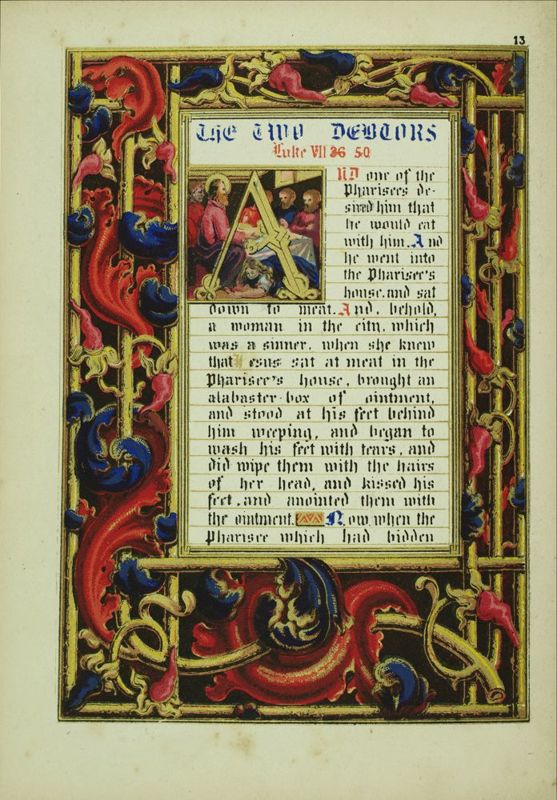 13
THE TWO DEBTORS
Luke VII 36 50
AND one of the
Pharisees de-
sired him that
he would eat
with him. And
he went into
the Pharisee's
house, and sat
down to meat. And, behold,
a woman in the city, which
was a sinner, when she knew
that Jesus sat at meat in the
Pharisee's house, brought an
alabaster-box of ointment,
and stood at his feet behind
him weeping, and began to
wash his feet with tears, and
did wipe them with the hairs
of her head, and kissed his
feet, and anointed them with
the ointment. Now when the
Pharisee which had bidden